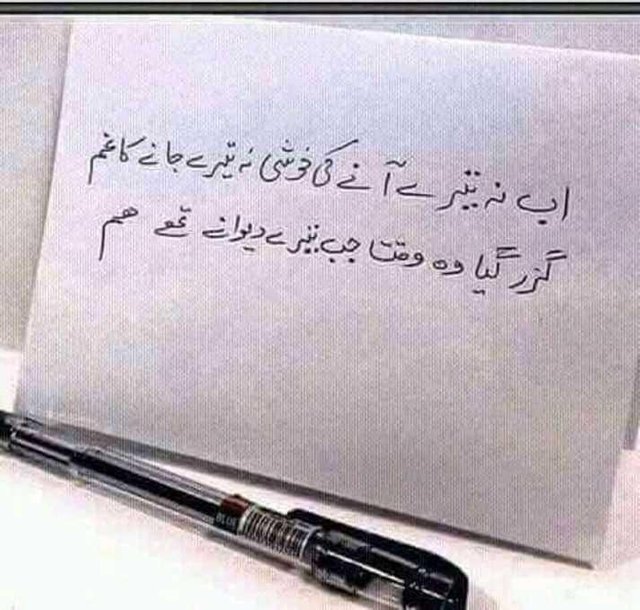 اب نہ تیرے آنے کی خوشی نہ تیرے جانے کا غم
گزر گیا وہ وقت جب تیرے دیوانے تھے ہم
BLUE